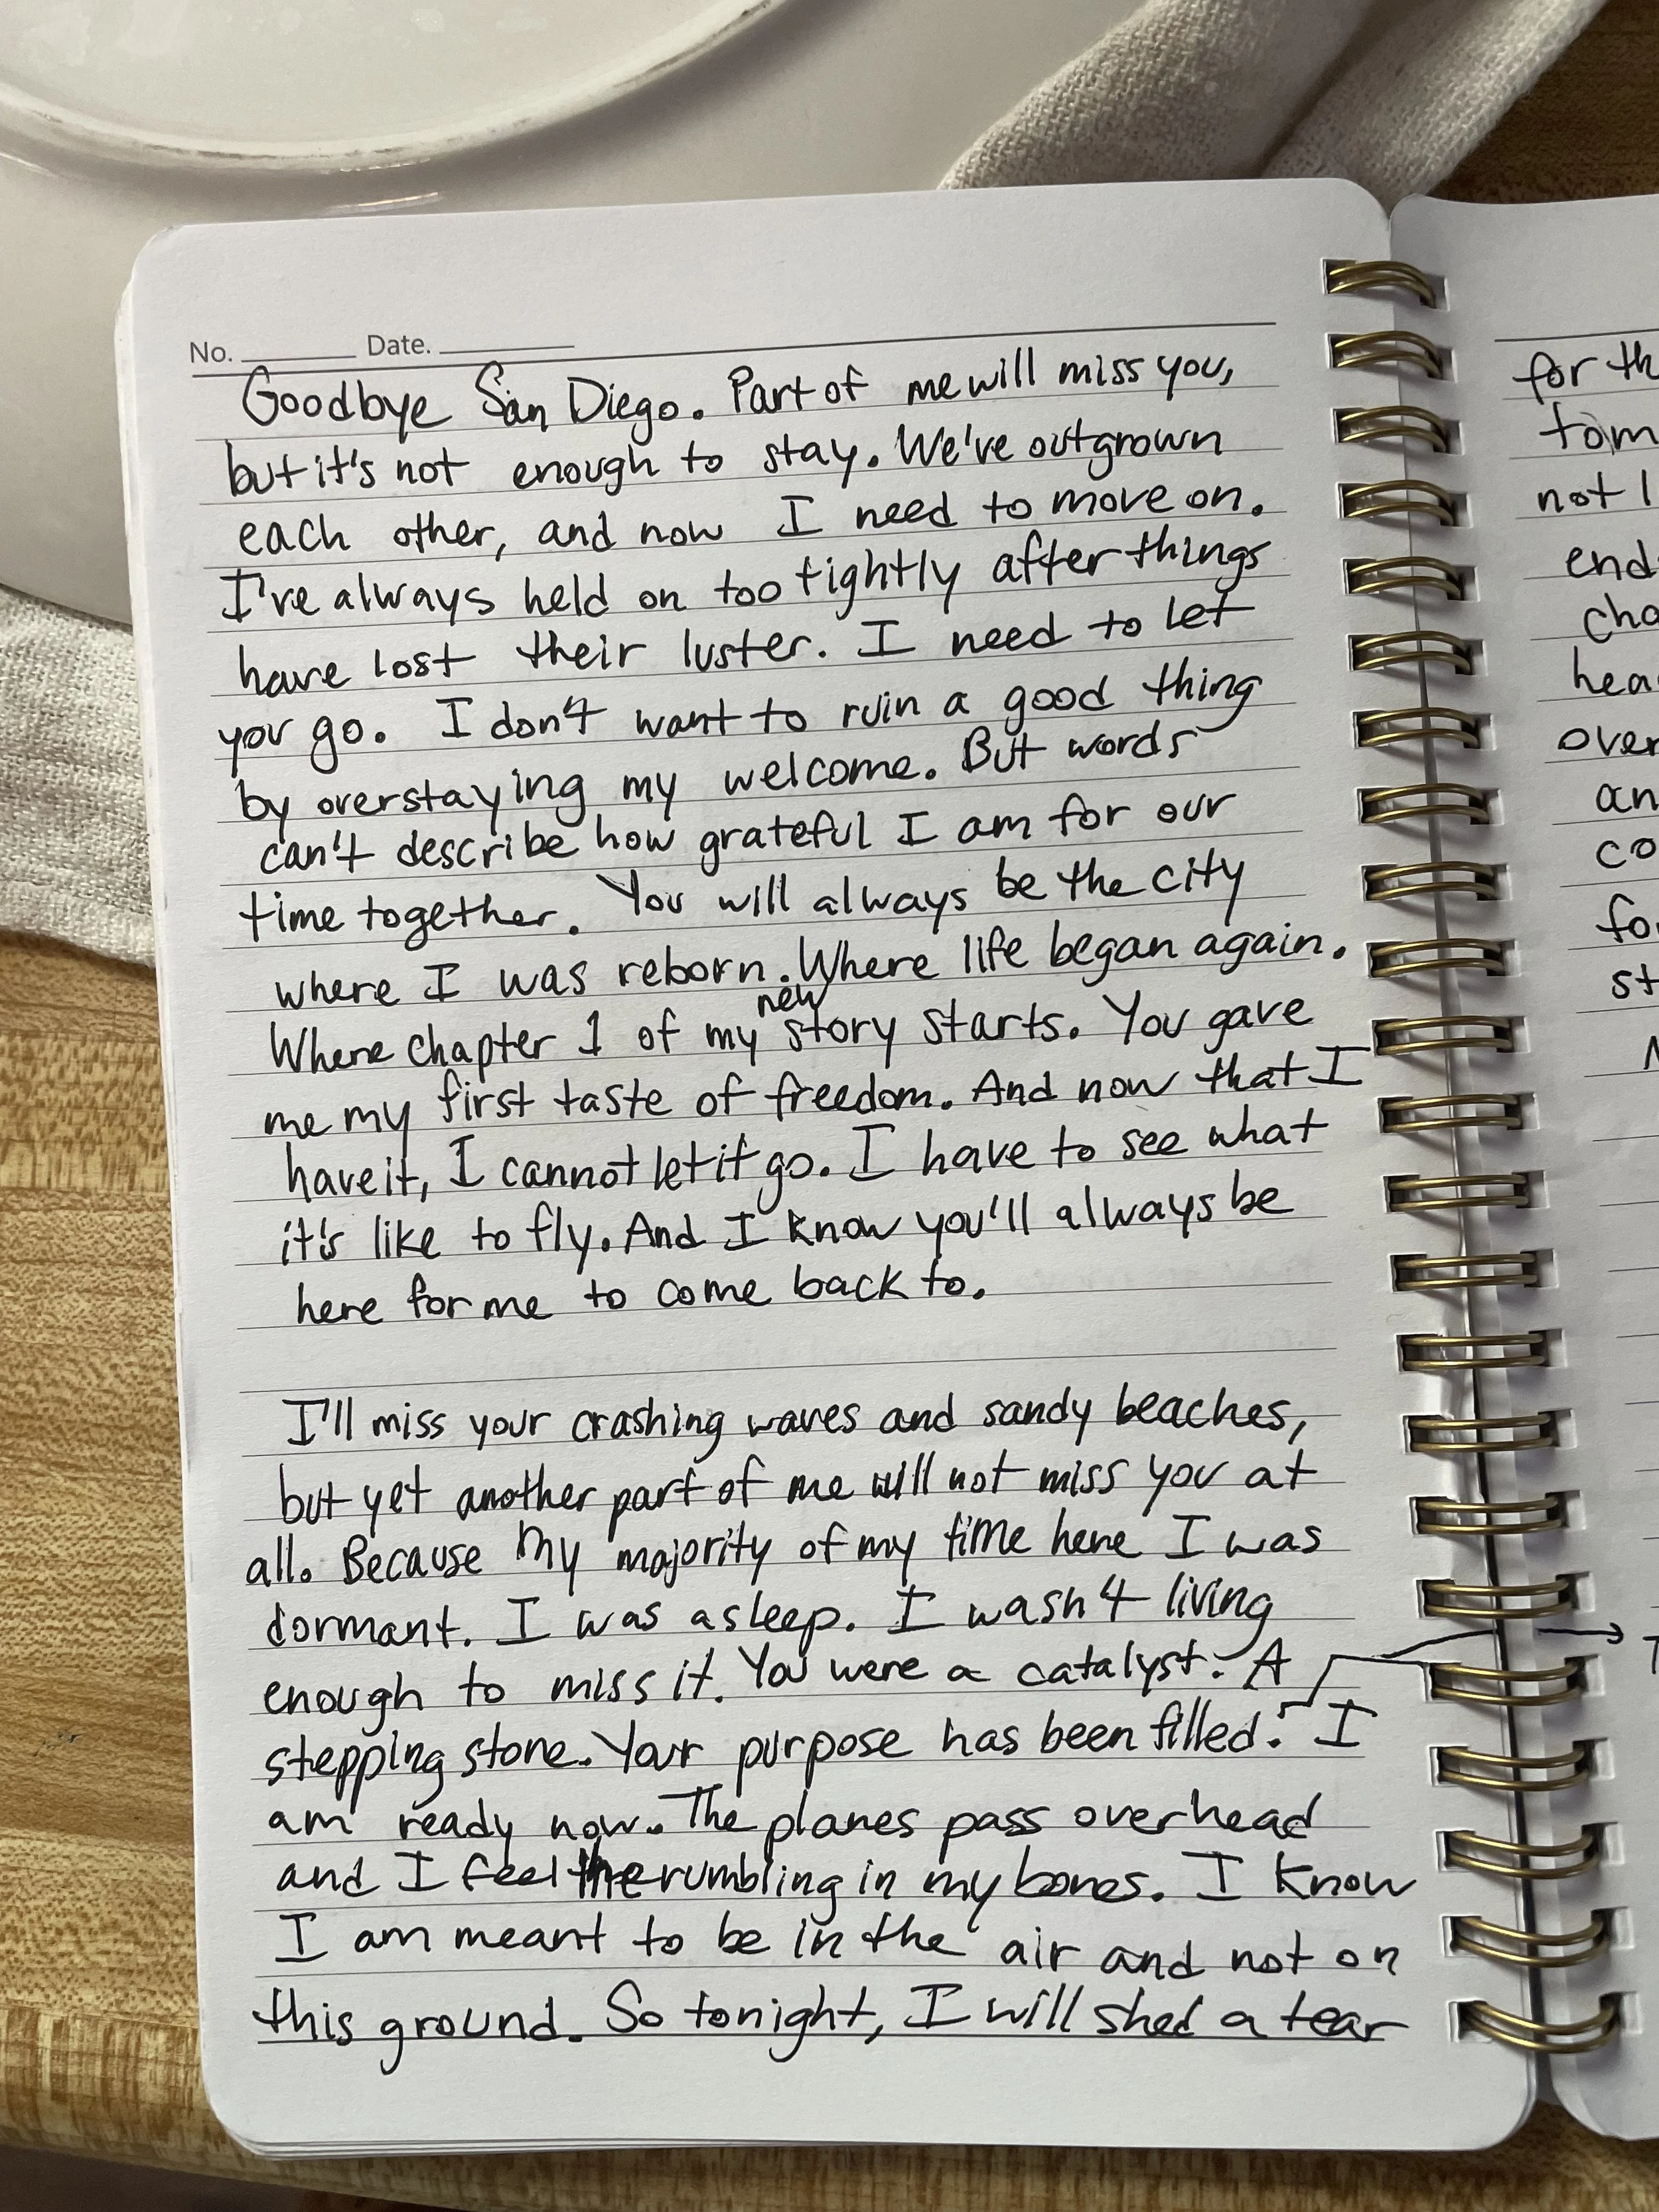 No. Date.
Goodbye San Diego. Part of me will miss you,
but it's not enough to stay. We've outgrown
each other, and now I need to move on.
I've always held on too tightly after things
have lost their luster. I need to let
you go. I don't want to ruin a good thing
by overstaying my welcome. But words
can't describe how grateful I am for our
time together. You will always be the city
where I was reborn. Where life began again.
Where chapter 1 of my new story starts. You gave
me my first taste of freedom. And now that I
have it, I cannot let it go. I have to see what
it's like to fly. And I know you'll always be
here for me to come back to.
I'll miss your crashing waves and sandy beaches,
but yet another part of me will not miss you at
all. Because my majority of my time here I was
dormant. I was asleep. I wasn't living
enough to miss it. You were a catalyst. A
stepping stone. Your purpose has been filled. I
am ready now. The planes pass overhead
and I feel the rumbling in my bones. I know
I am meant to be in the air and not on
this ground. So tonight, I will shed a tear
for th
not
over